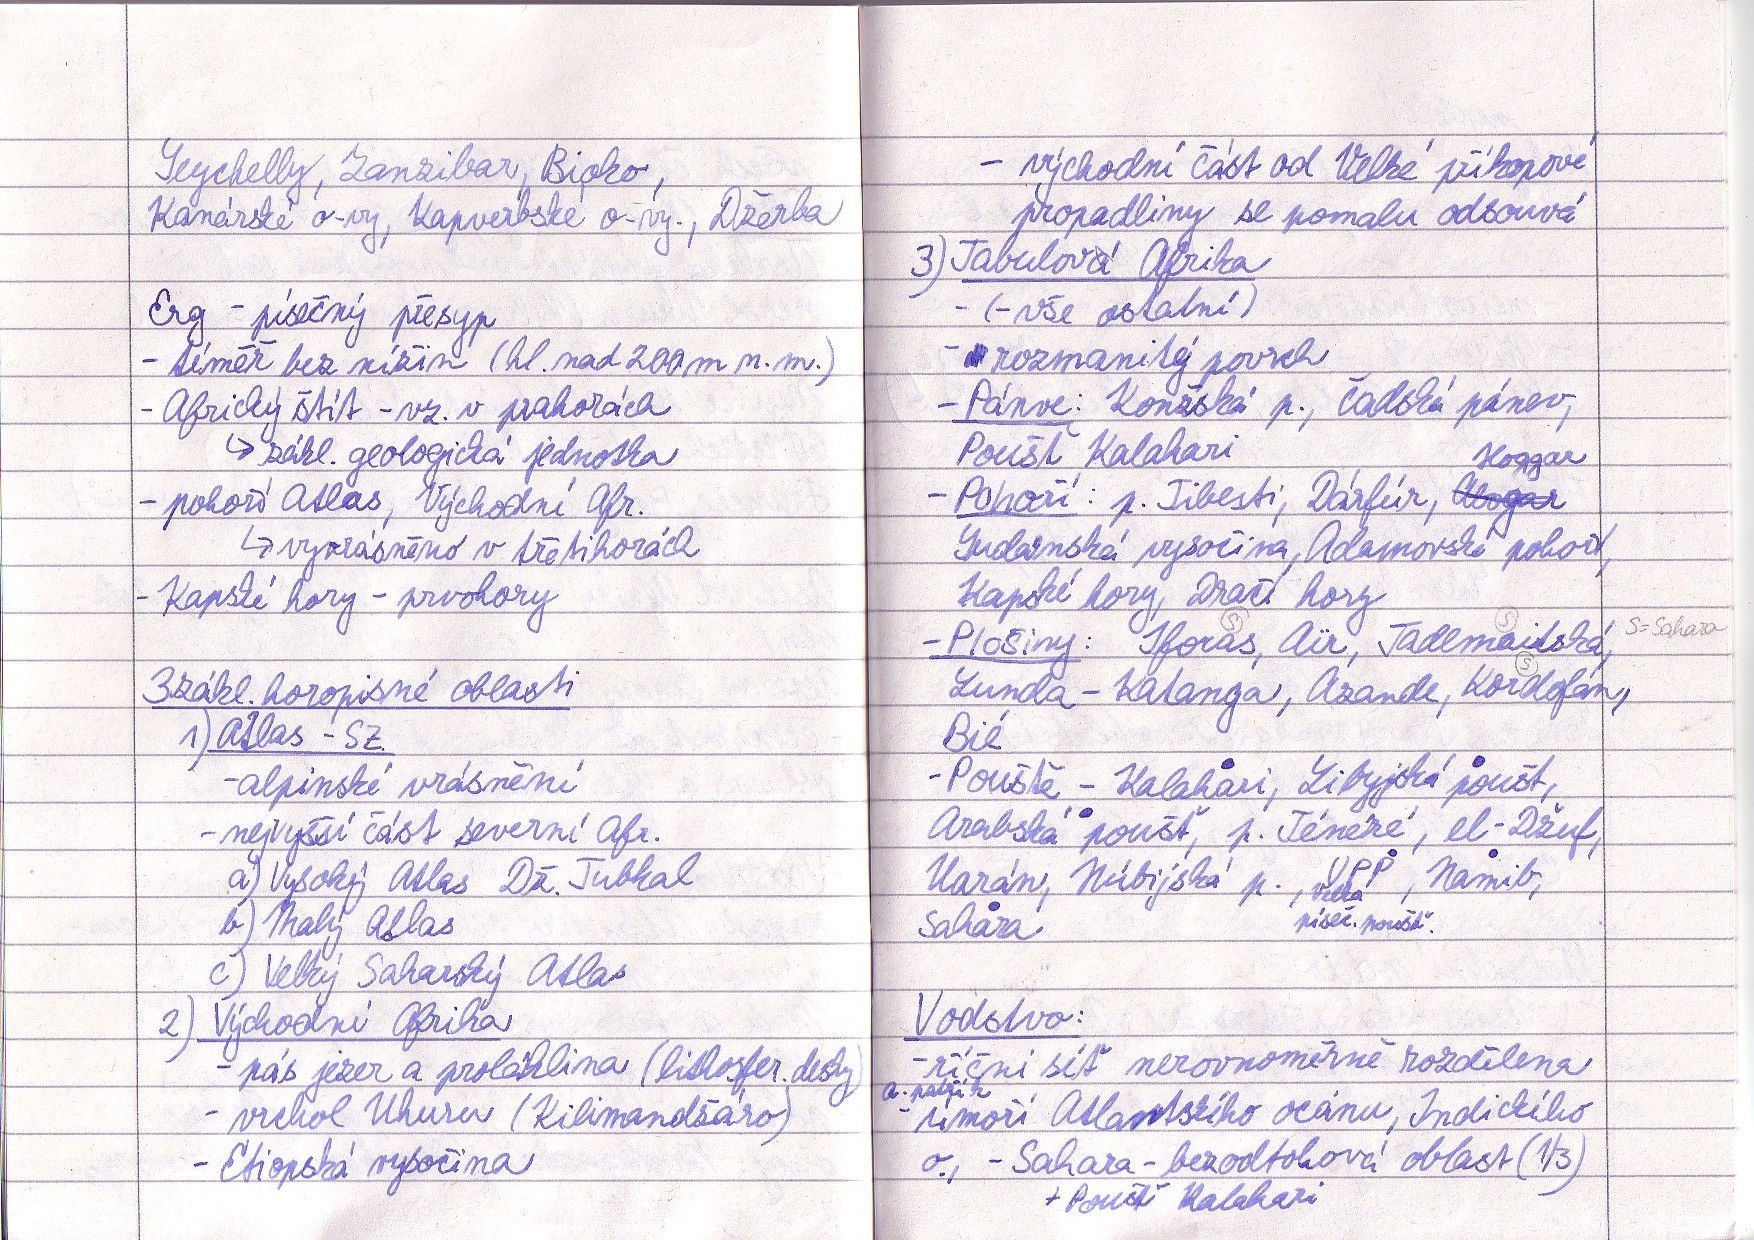 Seychelly, Zanzibar, Bioko,
Kanárské o-vy, Kapverbské o-vy., Džerba
Erg - písečný přesyp
- téměř bez nížin (hl. nad 200 m n. m.)
- Africký štít - vz. v prahorách
↳ zákl. geologická jednotka
- pohoří Atlas, Východní Afr.
↳ vyvrásněno v třetihorách
- Kapské hory - prvohory
3 zákl. horopisné oblasti
1) Atlas - SZ.
- alpinské vrásnění
- nejvyšší část severní Afr.
a) Vysoký Atlas Dž. Tubkal
b) Malý Atlas
c) Velký Saharský Atlas
2) Východní Afrika
- pás jezer a proláklina (lithosfer. desky)
- vrchol Uhuru (Kilimandžáro)
- Etiopská vysočina
- východní část od Velké příkopové
propadliny se pomalu odsouvá
3) Tabulová Afrika
- (- vše ostatní)
- rozmanitý povrch
- Pánve: Konžská p., Čadská pánev,
Poušť Kalahari
Hoggar
- Pohoří: p. Tibesti, Dárfúr,
Gudainská vysočina, Adamovské pohoří,
Kapské hory, Dračí hory
- Plošiny: Iforas, Aïr, Tademaitská,
S
S
S=Sahara
Lunda - Katanga, Azande, Kordofán,
S
Bié
- Pouště - Kalahari, Libyjská poušť,
Arabská poušť, p. Ténéré, el-Džuf,
Uarán, Núbijská p., VPP, Namib,
velká
píseč. poušť.
Sahara
Vodstvo:
- říční síť nerovnoměrně rozdělena
- úmoří Atlantského ocánu, Indického
o., - Sahara - bezodtoková oblast (1/3)
+ Poušť Kalahari